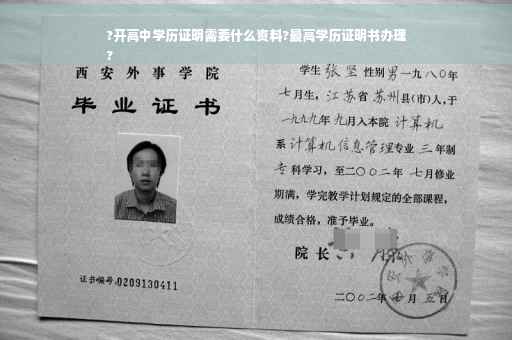 ?开高中学历证明需要什么资料?最高学历证明书办理
?
西安外事学院
毕业证书
证书编号:0209130411
学生 张坚 性别男一九八〇年
七月生,江苏省苏州县(市)人,于
一九九九年九月入本院 计算机
系 计算机信息管理专业 三 年制
专科学习,至二〇〇二年 七月修业
期满,学完教学计划规定的全部课程,
成绩合格,准予毕业。
院长
二〇〇二年 月 五日